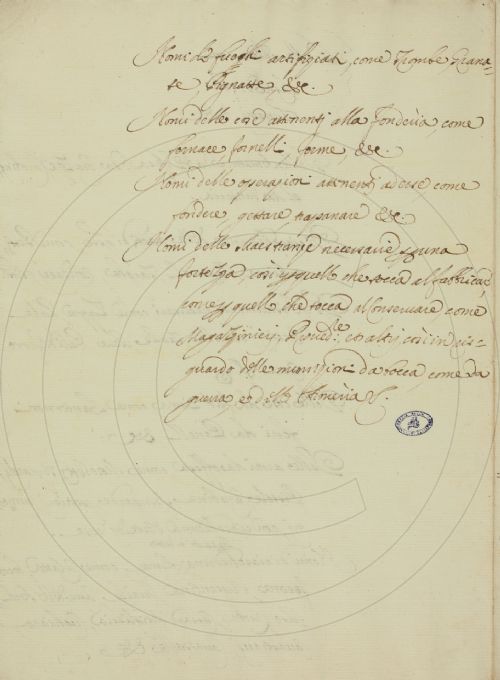 Nomi de fuochi artifiziati, come Trombe Grana-
te, Pignatte, &c.
Nomi delle cose attinenti alla Fonderia come
fornace, fornelli, forme, &c.
Nomi delle operazioni attinenti ad esse come
fondere gettare trapanare &c.
Nomi delle Maestranze necessarie p una
fortezza, così p quello che tocca al fabbricar,
come p quello che tocca al Conservare come
Magazzinieri, et altri, così in ris-
guardo delle munizioni da bocca come da
guerra e dell' Armeria &.